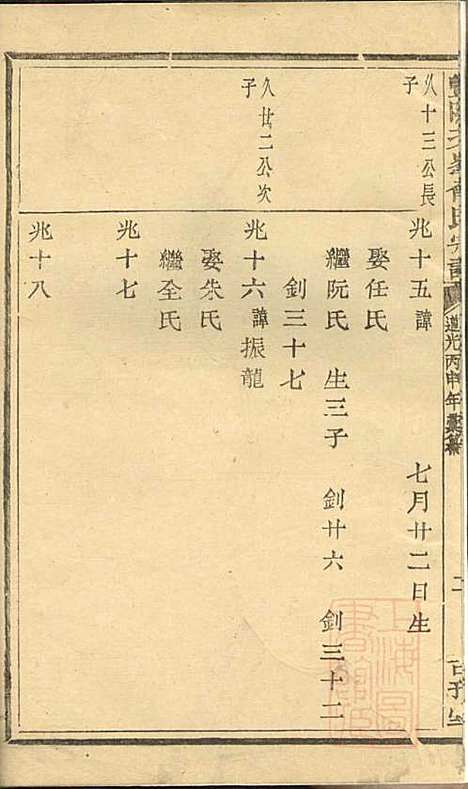 道光丙申年彙纂
二
久十三公長
子
兆十五諱 七月廿二日生
娶任氏
繼阮氏 生三子 釗廿六 釗三十二
釗三十七
久廿二公次
子
兆十六諱振龍
娶朱氏
繼全氏
兆十七
兆十八
上海圖
書館藏